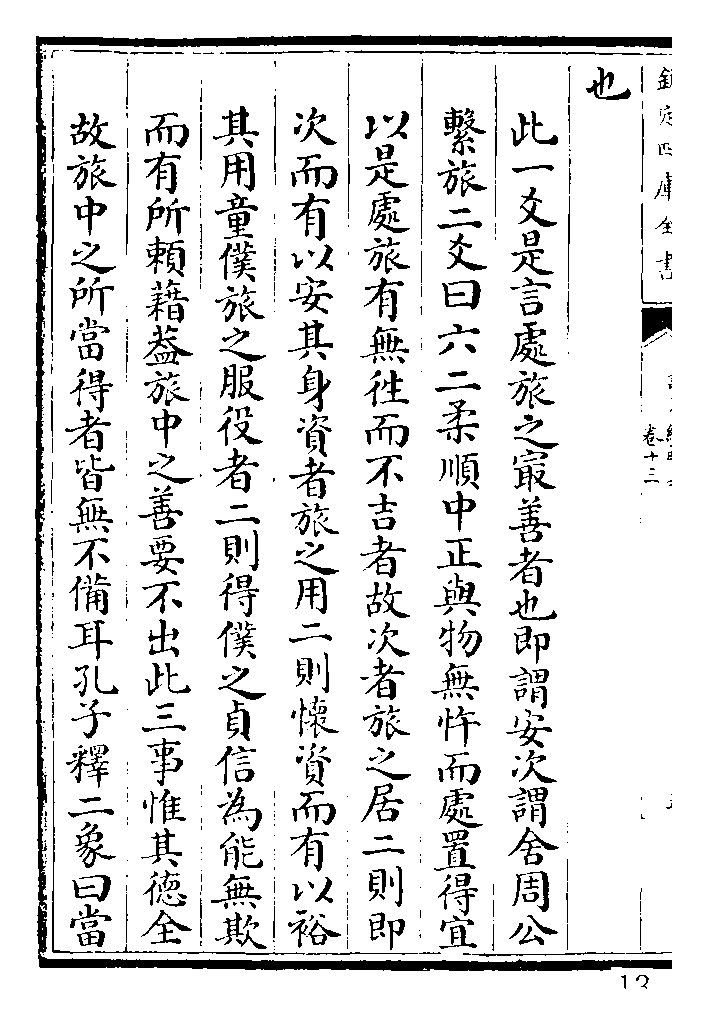 欽定四庫全書
卷十三
也
此一爻是言處旅之最善者也即謂安次謂舍周公
繫旅二爻曰六二柔順中正與物無忤而處置得宜
以是處旅有無往而不吉者故次者旅之居二則即
次而有以安其身資者旅之用二則懷資而有以裕
其用童僕旅之服役者二則得僕之貞信為能無欺
而有所賴藉葢旅中之善要不出此三事惟其德全
故旅中之所當得者皆無不備耳孔子釋二象曰當